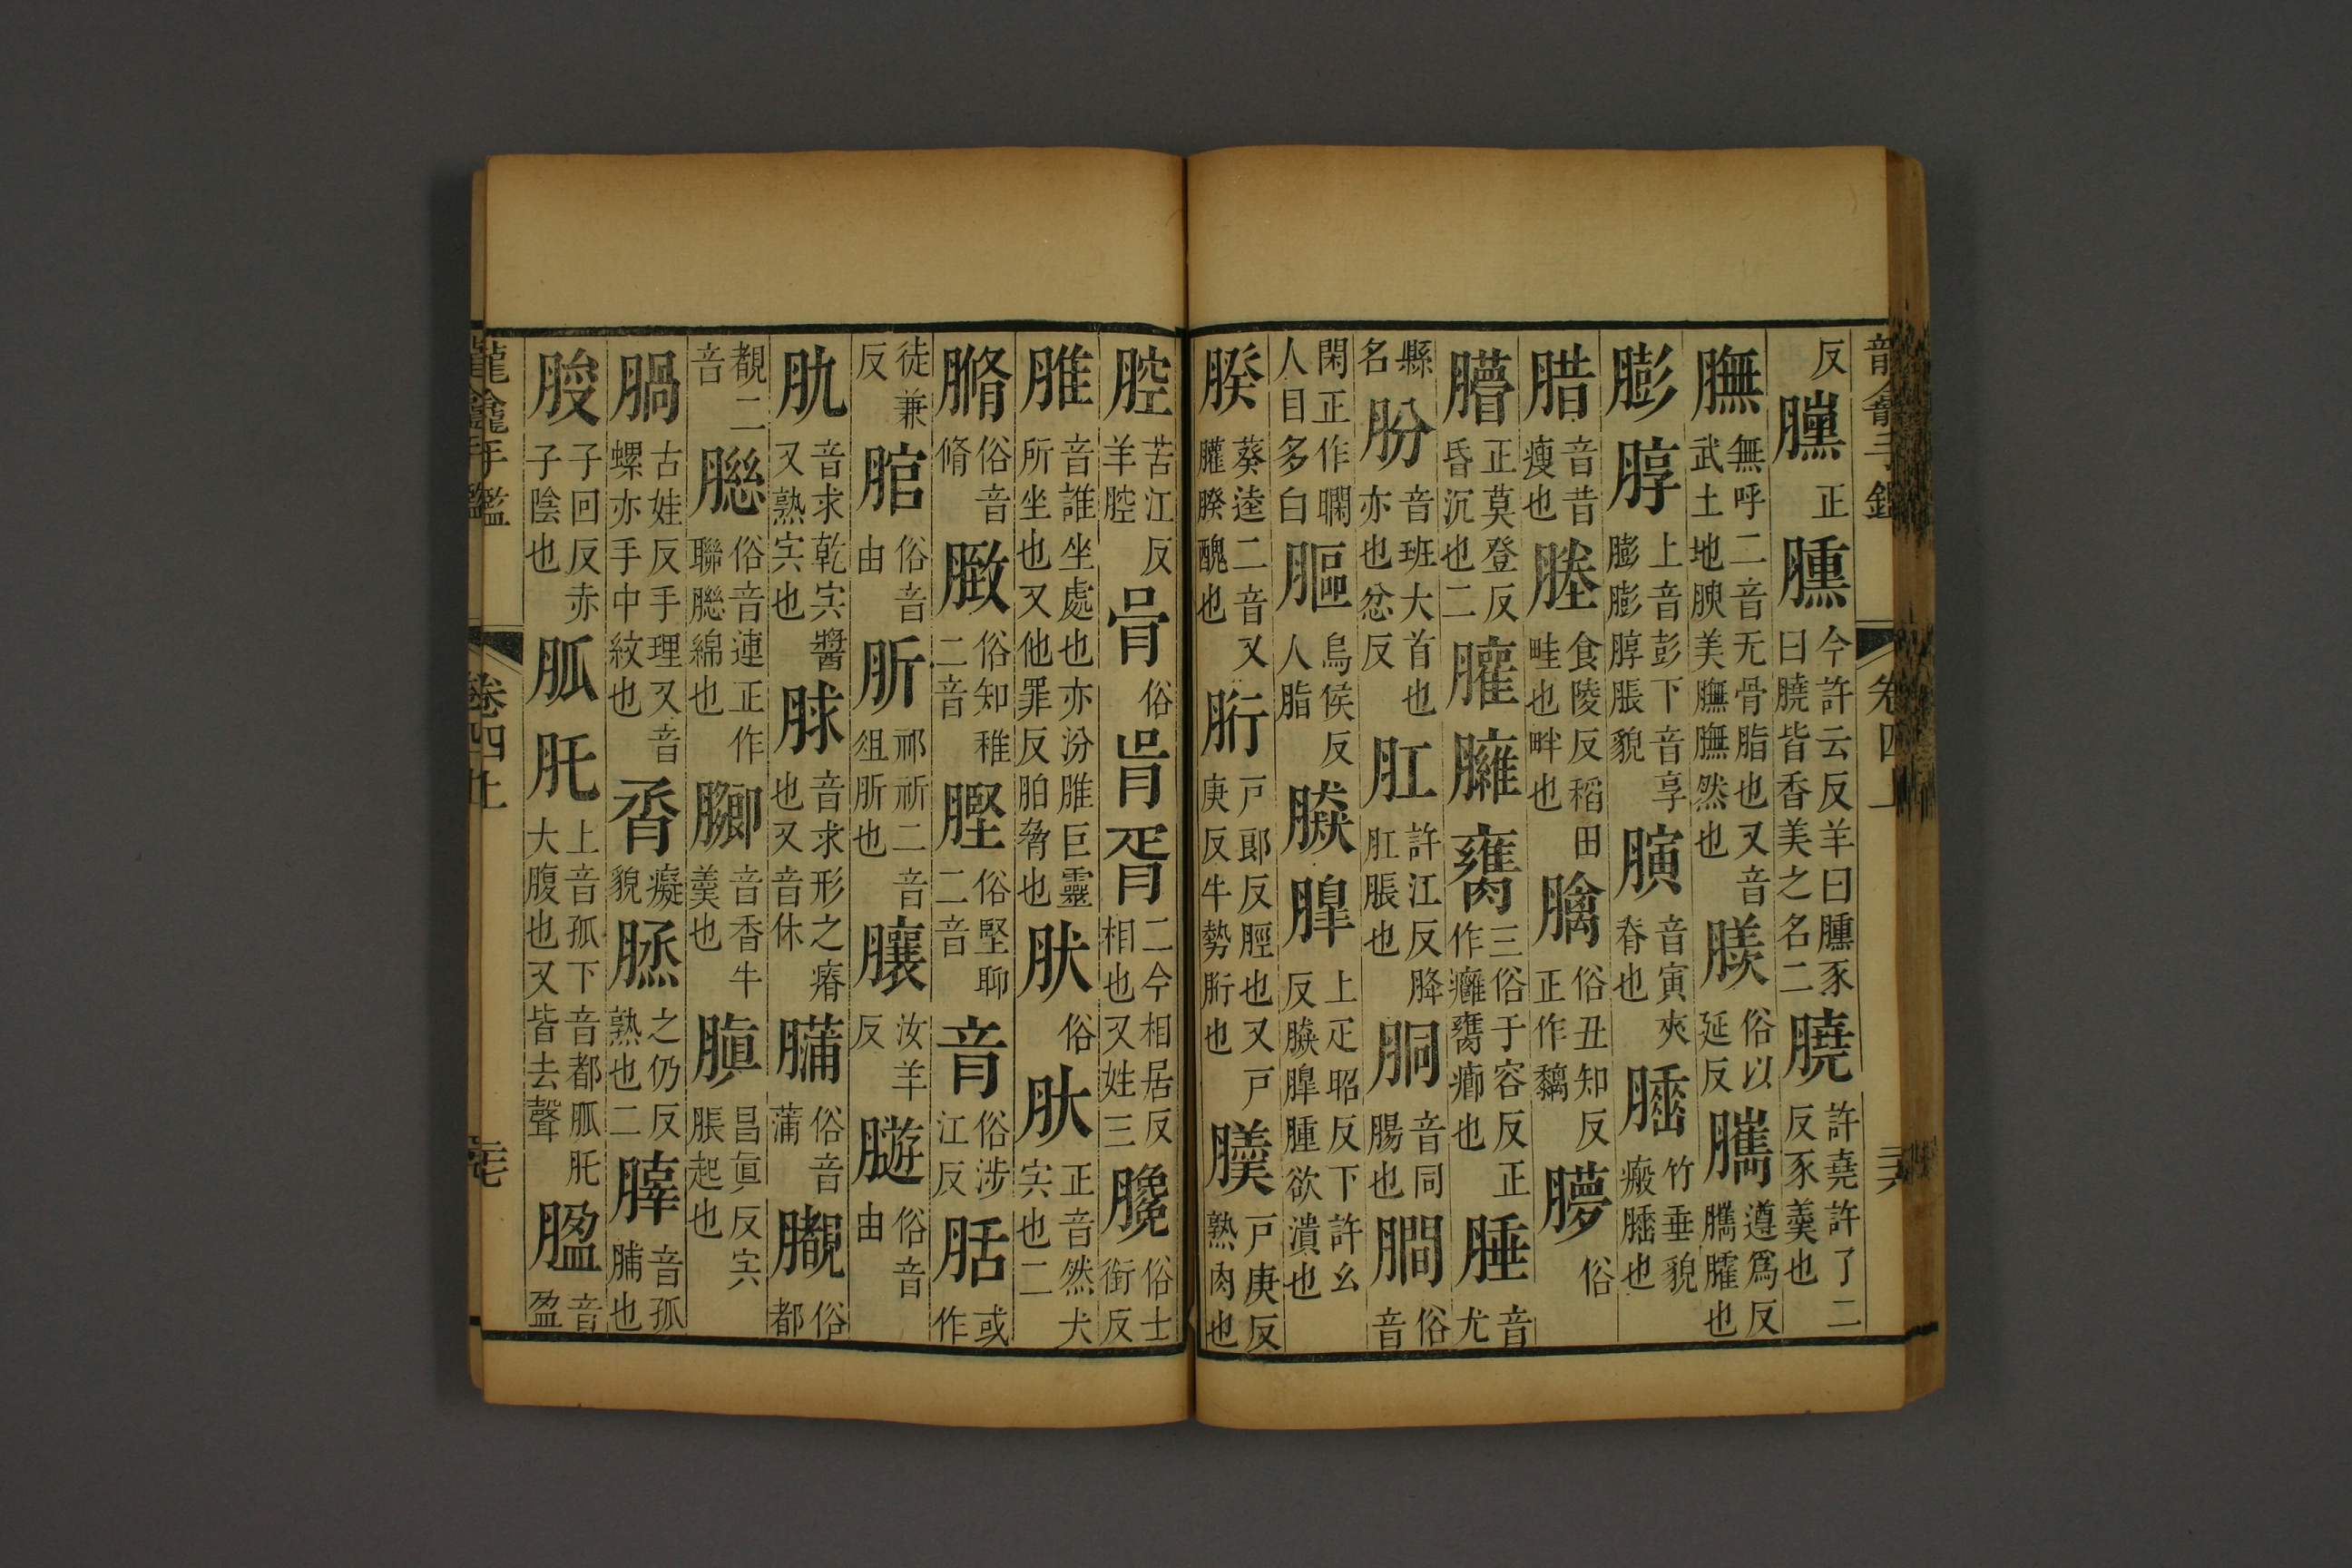 龍龕手鑑 卷四上 三六
反䐿正臐今許云反羊曰臐豕曰膮皆香美之名二膮許堯許了二反豕羹也
膴無呼二音无骨脂也又音武土地腴美膴膴然也䑆俗以延反臇遵爲反臇臛也
膨脝上音彭下音享膨膨脝脹貌䐙音寅夾脊也腄竹垂貌瘢腄也
腊音昔瘦也塍食陵反稻田畦也畔也䐅俗丑知反正作黐㬹俗
䁅正莫登反昏沉也二臛臃臡三俗于容反正作癰癕癤也腄音尤
縣名肦音班大首也亦也忿反肛許江反胮肛脹也胴音同腸也䐡俗音
閑正作瞯人目多白膒烏侯反人脂䐢脭上疋昭反下許幺反䐢脭腫欲潰也
睽葵逵二音又臞睽醜也胻戸郎反脛也又戸庚反牛勢胻也䑉戸庚反熟肉也
腔苦江反羊腔𦙃俗𦙄胥二今相居反相也又姓三䑎俗士銜反
脽音誰坐處也亦汾脽巨靈所坐也又他罪反胉脅也肰俗肰正音然犬宍也二
脩俗音脩䐭俗知稚二音䐉俗堅聊二音㖣俗涉江反䏦或作
徒兼反䐊俗音由肵祁祈二音俎肵也䑋汝羊反䠿俗音由
肍音求乾宍醬又熟宍也脙音求形之瘠也又音休䐾俗音蒲䚓俗都
覩二音聰俗音連正作聯聰綿也膷音香牛羹也䐜昌眞反宍脹起也
腡古娃反手理又音螺亦手中紋也䏽癡貌脀之仍反熟也二䏣音孤脯也
朘子回反赤子陰也胍肚上音孤下音都胍肚大腹也又皆去聲䐆音盈
龍龕手鑑 卷四上 三七